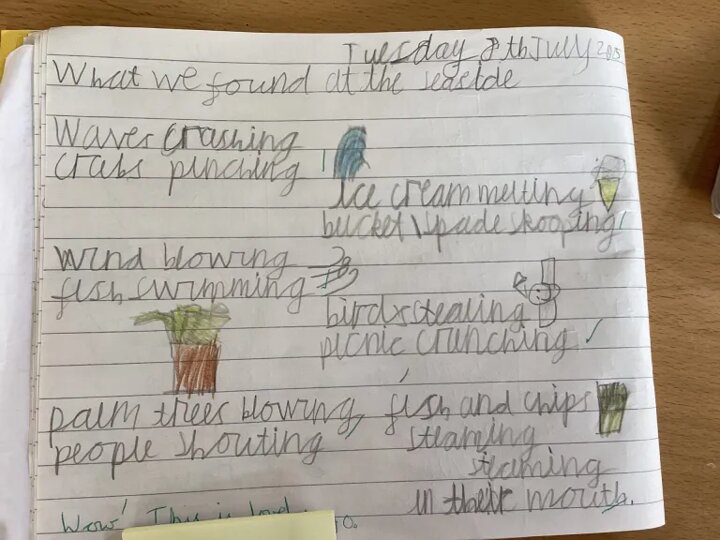 Tuesday 8th July 2015
What we found at the seastde
Waves crashing
crabs pinching
Ice cream melting
bucket \ spade skooping
wind blowing
fish swimming
birds stealing
picnic crunching
palm trees blowing
people shouting
fish and chips
steaming
steaming
in their mouth.
Wow! This is